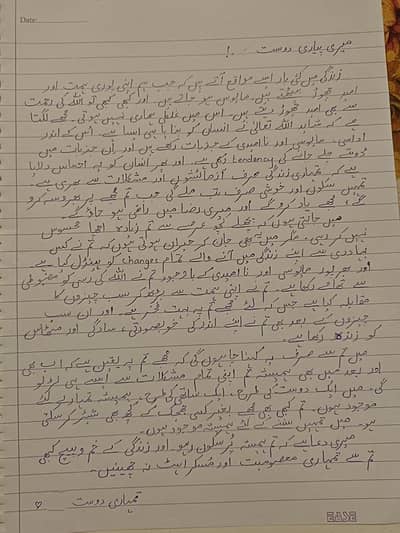 Date:
میری پیاری دوست ۔۔۔!
زندگی میں کئی بار ایسے مواقع آتے ہیں کہ جب ہم اپنی پوری ہمت اور
امید چھوڑ بیٹھتے ہیں۔ مایوس ہو جاتے ہیں۔ اور کبھی کبھی تو اللہ کی رحمت
سے بھی امید چھوڑ دیتے ہیں۔ اس میں غلطی ہماری نہیں ہوتی۔ مجھے لگتا
ہے کہ شاید اللہ تعالیٰ نے انسان کو بنایا ہی ایسا ہے۔ اس کے اندر
اداسی، مایوسی اور ناامیدی کے جذبات رکھے ہیں اور ان جذبات میں
ڈوبتے چلے جانے کی tendency رکھی ہے۔ اور پھر انسان کو یہ احساس دلایا
ہے کہ تمہاری زندگی صرف آزمائشوں اور مشکلات سے بھری ہے۔
تمہیں سکون اور خوشی صرف تب ملے گی جب تم مجھ پر بھروسہ کرو
گے، مجھے یاد کرو گے اور میری رضا میں راضی ہو جاؤ گے۔
میں جانتی ہوں کہ پچھلے کچھ عرصے سے تم زیادہ اچھا محسوس
نہیں کر رہی۔ مگر میں یہ بھی جان کر حیران ہوتی ہوں کہ تم نے کس
بہادری سے اپنی زندگی میں آنے والے تمام changes کو ہینڈل کیا ہے۔
اور بھرپور مایوسی اور ناامیدی کے باوجود تم نے اللہ کی رسی کو مضبوطی
سے تھامے رکھا ہے۔ تم نے اپنی ہمت سے بڑھ کر سب چیزوں کا
مقابلہ کیا ہے جس کے لئے مجھے تم پر بہت فخر ہے۔ اور ان سب
چیزوں کے بعد بھی تم نے اپنے اندر کی خوبصورتی، سادگی اور مٹھاس
کو زندہ رکھا ہے۔
میں تم سے صرف یہ کہنا چاہوں گی کہ مجھے تم پر یقین ہے کہ اب بھی
اور بعد میں بھی ہمیشہ تم اپنی تمام مشکلات سے ایسے ہی لڑ لو
گی۔ میں ایک دوست کی طرح، ایک ساتھی کی طرح، ہمیشہ تمہارے لئے
موجود ہوں۔ تم کبھی بھی مجھے بغیر کسی جھجک کے کچھ بھی شیئر کر سکتی
ہو۔ میں تمہیں سننے کے لئے ہمیشہ موجود ہوں۔
میری دعا ہے کہ تم ہمیشہ پرسکون رہو اور زندگی کے غم و پیچ کبھی
تم سے تمہاری معصومیت اور مسکراہٹ نہ چھینیں۔
تمہاری دوست ♡
EASE